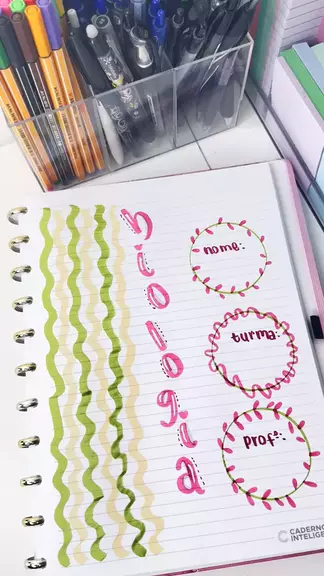 biologia
nome:
turma:
prof°:
CADERNO
INTELIGE